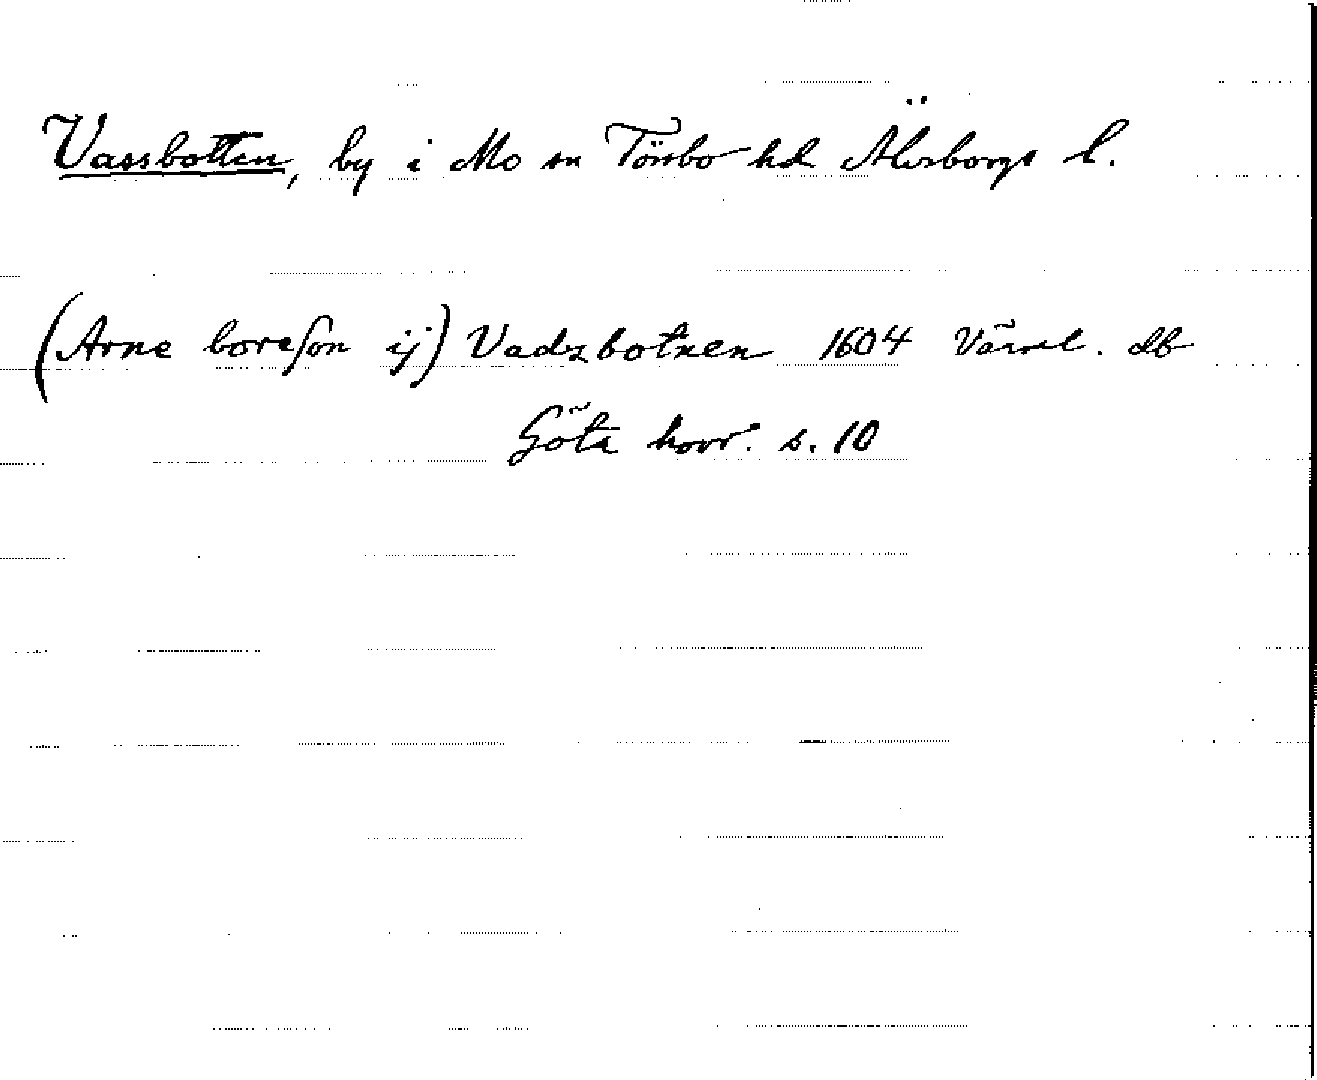 Vassbotten, by i Mo sn Tössbo hd Älvsborgs l.
(Arne boreſon ij) Vadzbotnen 1604 Värml. db
Göta hovr. s. 10